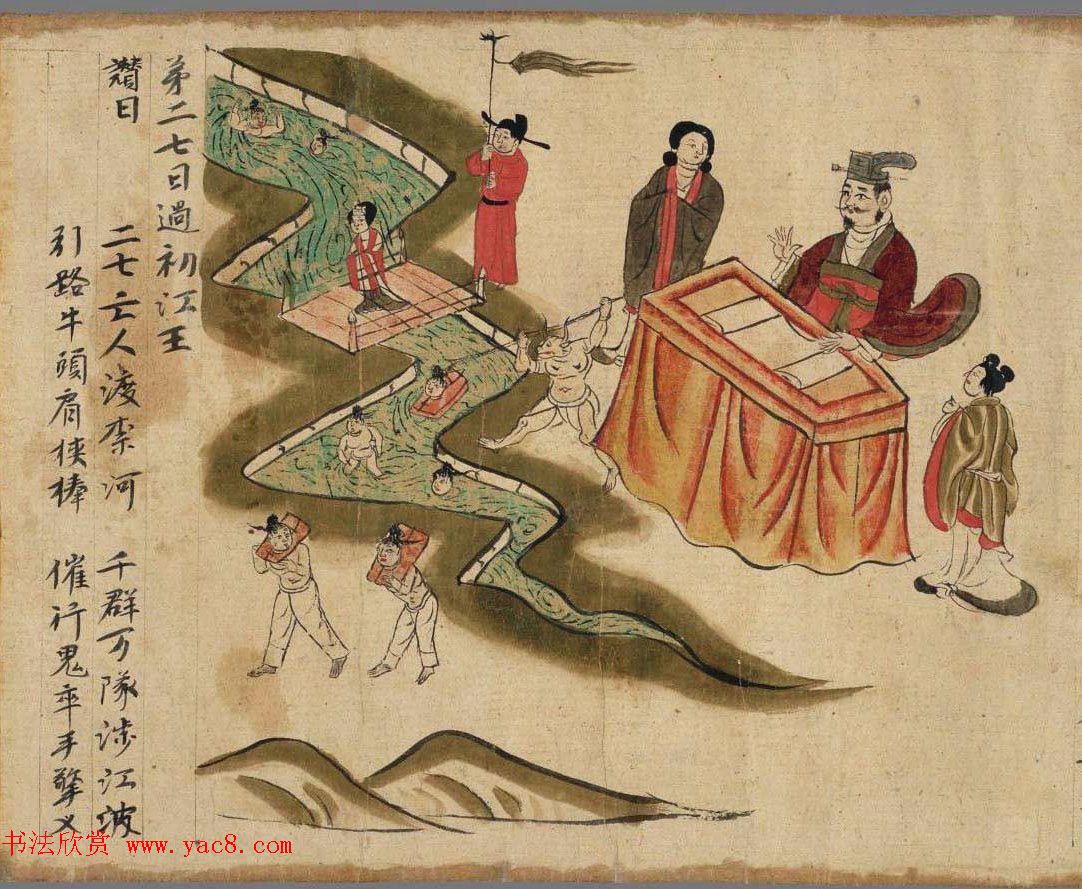 第二七日過初江王
讚曰
二七亡人渡奈河 千群万隊涉江波
引路牛頭肩挾棒 催行鬼卒手擎叉
书法欣赏 www.yac8.com